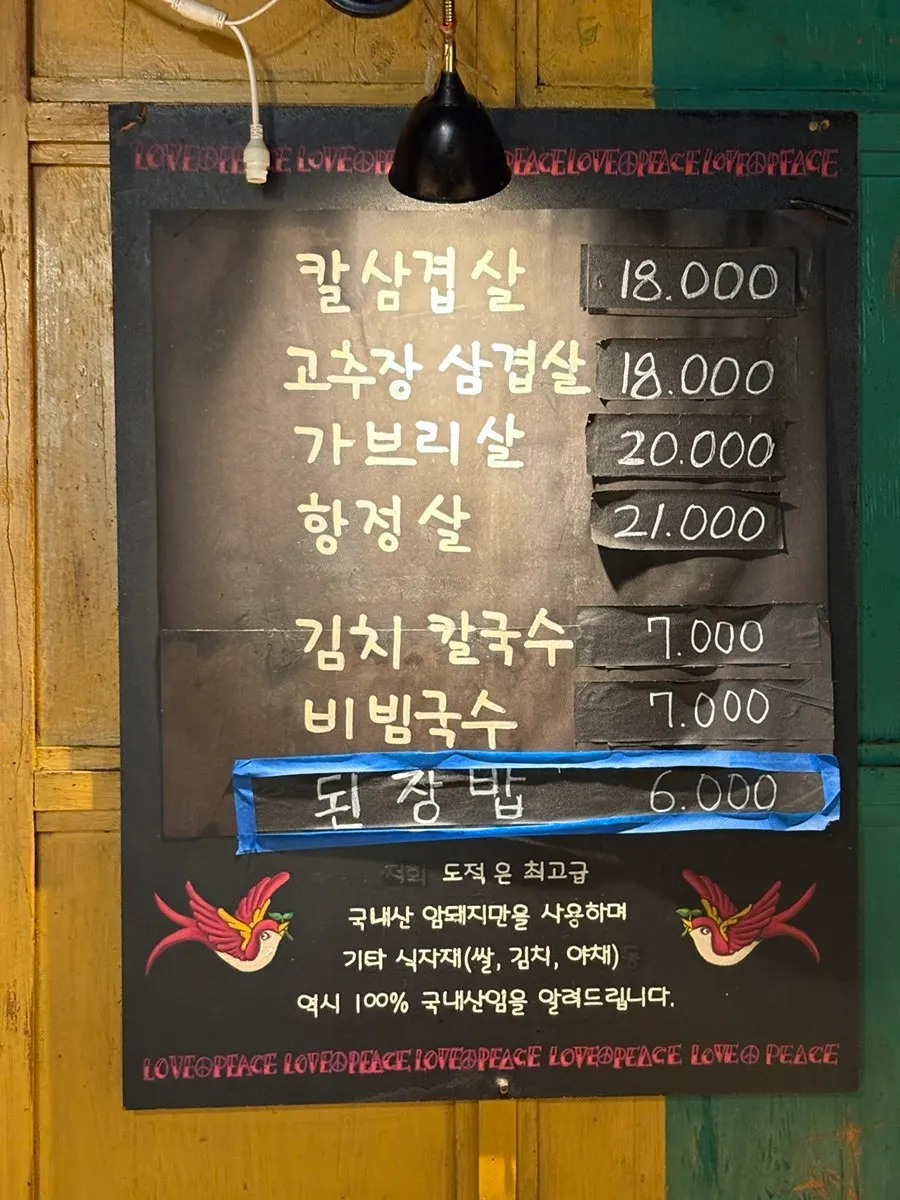 LOVE☮PEACE LOVE☮P PEACE LOVE☮PEACE LOVE☮PEACE
칼삼겹살 18.000
고추장 삼겹살 18.000
가브리살 20.000
항정살 21.000
김치 칼국수 7.000
비빔국수 7.000
된장밥 6.000
저희 도적은 최고급
국내산 암돼지만을 사용하며
기타 식자재(쌀, 김치, 야채)
역시 100% 국내산임을 알려드립니다.
LOVE☮PEACE LOVE☮PEACE LOVE☮PEACE LOVE☮PEACE LOVE☮PEACE